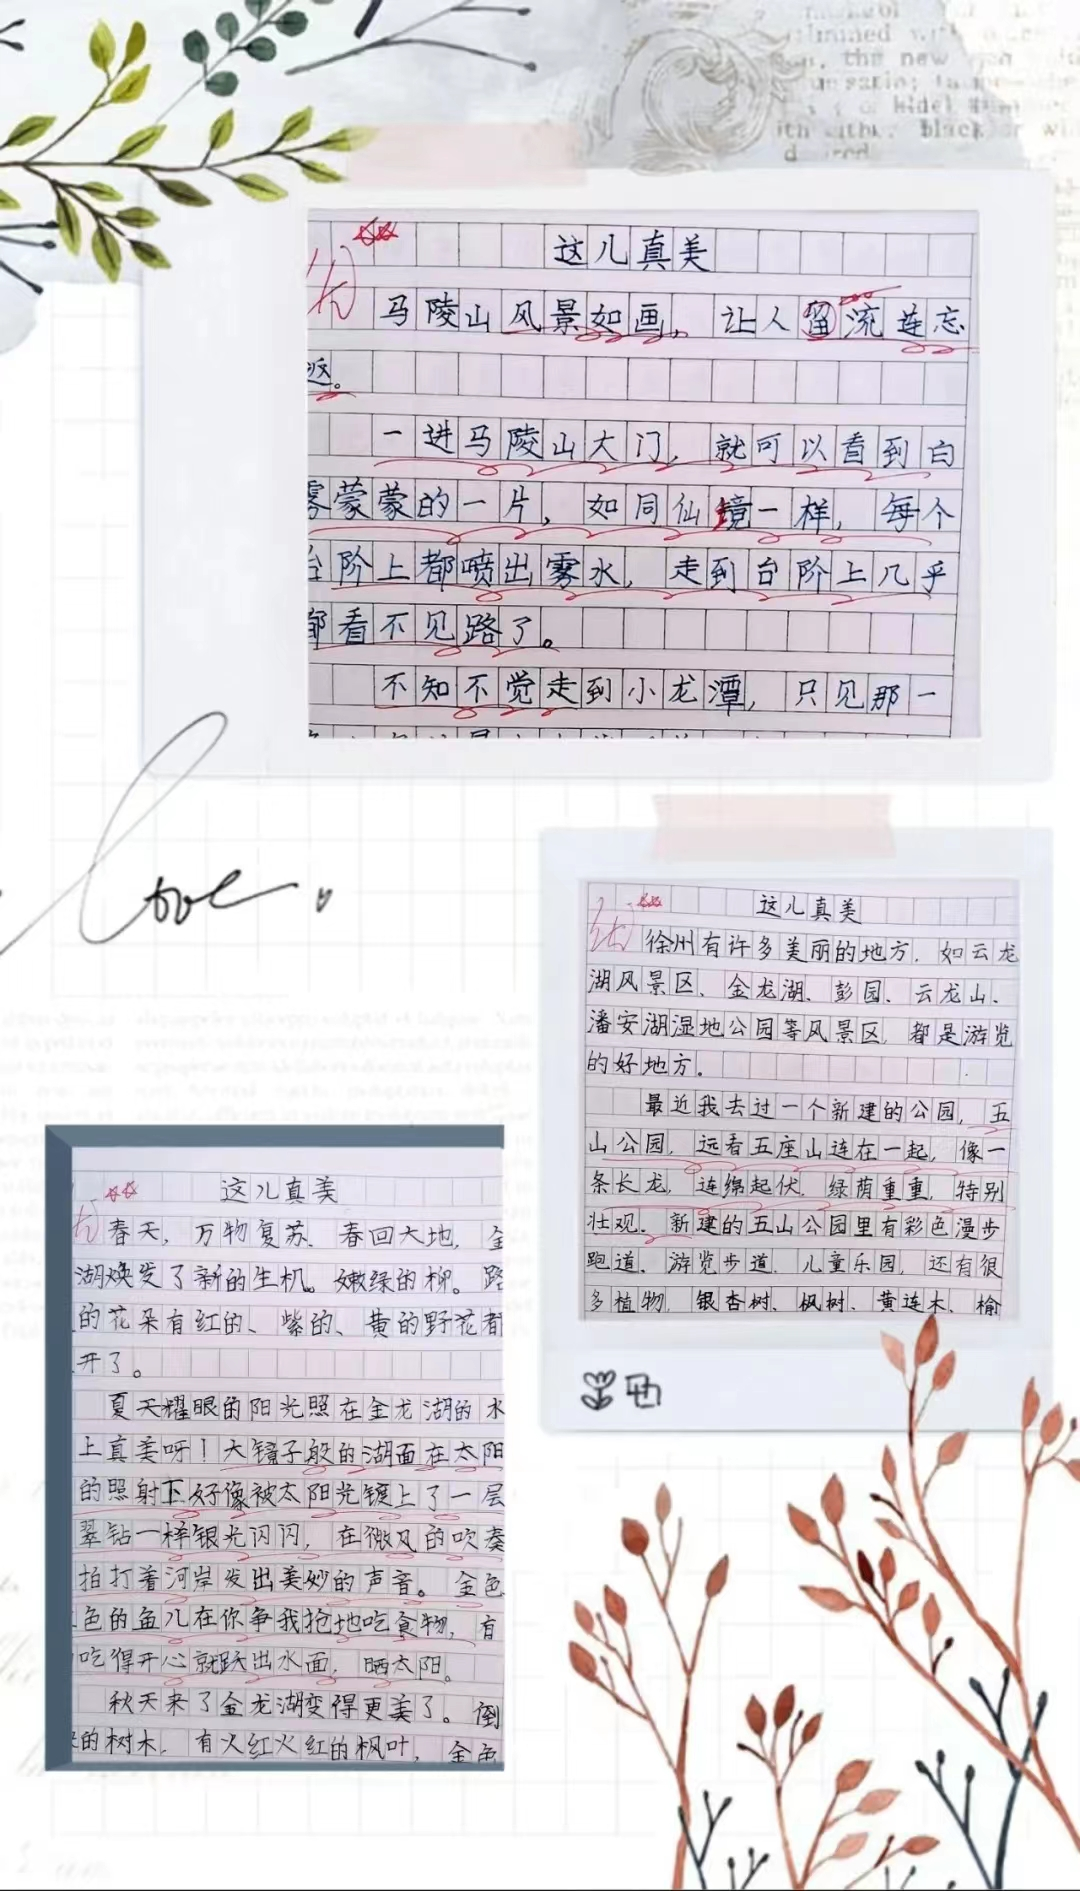 这儿真美
马陵山风景如画,让人留流连忘
返。
一进马陵山大门,就可以看到白
雾蒙蒙的一片,如同仙镜一样,每个
台阶上都喷出雾水,走到台阶上几乎
都看不见路了。
不知不觉走到小龙潭,只见那一
love
这儿真美
徐州有许多美丽的地方,如云龙
湖风景区、金龙湖、彭园、云龙山、
潘安湖湿地公园等风景区,都是游览
的好地方。
最近我去过一个新建的公园,五
山公园,远看五座山连在一起,像一
条长龙,连绵起伏,绿荫重重,特别
壮观。新建的五山公园里有彩色漫步
跑道、游览步道、儿童乐园,还有很
多植物,银杏树、枫树、黄连木、榆
这儿真美
春天,万物复苏、春回大地,金
湖焕发了新的生机。嫩绿的柳。路
的花朵有红的、紫的、黄的野花都
开了。
夏天耀眼的阳光照在金龙湖的水
上真美呀!大镜子般的湖面在太阳
的照射下好像被太阳光镀上了一层
翠钻一样银光闪闪,在微风的吹奏
拍打着河岸发出美妙的声音。金色
色的鱼儿在你争我抢地吃食物,有
吃得开心就跃出水面,晒太阳。
秋天来了金龙湖变得更美了。倒
的树木,有火红火红的枫叶,金色